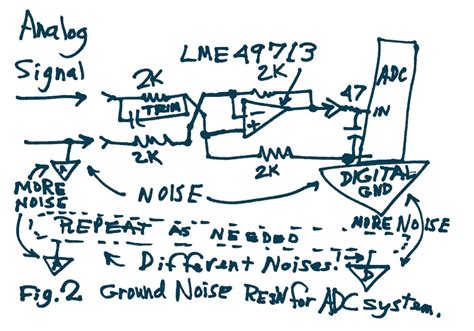 Analog
Signal
LME49713
2K
2K
47
ADC
TRIM
-
+
IN
2K
2K
A
MORE
NOISE
NOISE
DIGITAL
GND
MORE NOISE
REPEAT AS NEEDED
Different Noises!
A
D
Fig.2 Ground Noise REJN for ADC system.